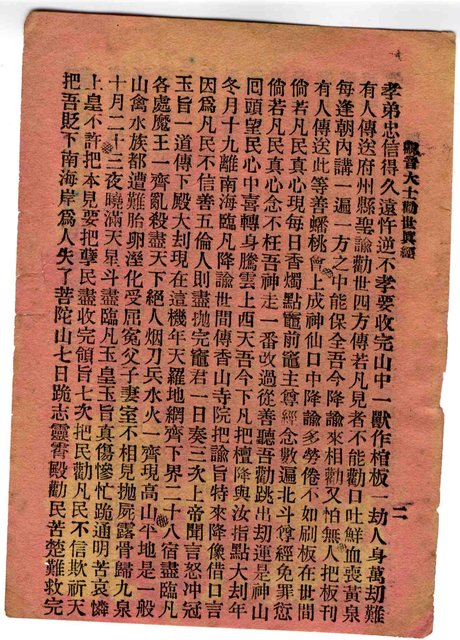 觀音大士勸世眞經
二
孝弟忠信得久遠忤逆不孝要收完山中一獸作棺板一劫人身萬劫難
有人傳送府州縣聖諭勸世四方傳若凡見者不能勸口吐鮮血喪黃泉
每逢朝內講一遍一方之中能保全吾今降諭來相勸又怕無人把板刊
有人傳送此等善蟠桃會上成神仙口中降諭多勞倦不如刷板在世間
倘若凡民真心現每日香燭點竈前竈主尊經念數遍北斗尊經免罪愆
倘若凡民真心念不枉吾神走一番改過從善聽吾勸跳出劫運是神山
回頭望民心中喜轉身騰雲上西天吾今下凡把檀降與汝指點大刦年
冬月十九離南海臨凡降諭世間傳香山寺院把諭旨特來降像借口言
因爲凡民不信善五倫人則盡拋完竈君一日奏三次上帝聞言怒冲冠
玉旨一道傳下殿大刦現在這機年天羅地網齊下界二十八宿盡臨凡
各處魔王一齊亂殺盡天下絕人烟刀兵水火一齊現高山平地是一般
山禽水族都遭難胎卵溼化受屈冤父子妻室不相見拋屍露骨歸九泉
十月二十三夜曉滿天星斗盡臨凡玉皇玉旨真傷慘忙跪通明苦哀憐
上皇不許把本見要把孽民盡收完領旨七次把民勸凡民不信欺祈天
把吾貶下南海岸爲人失了菩陀山七日跪志靈霄殿勸民苦楚難救完